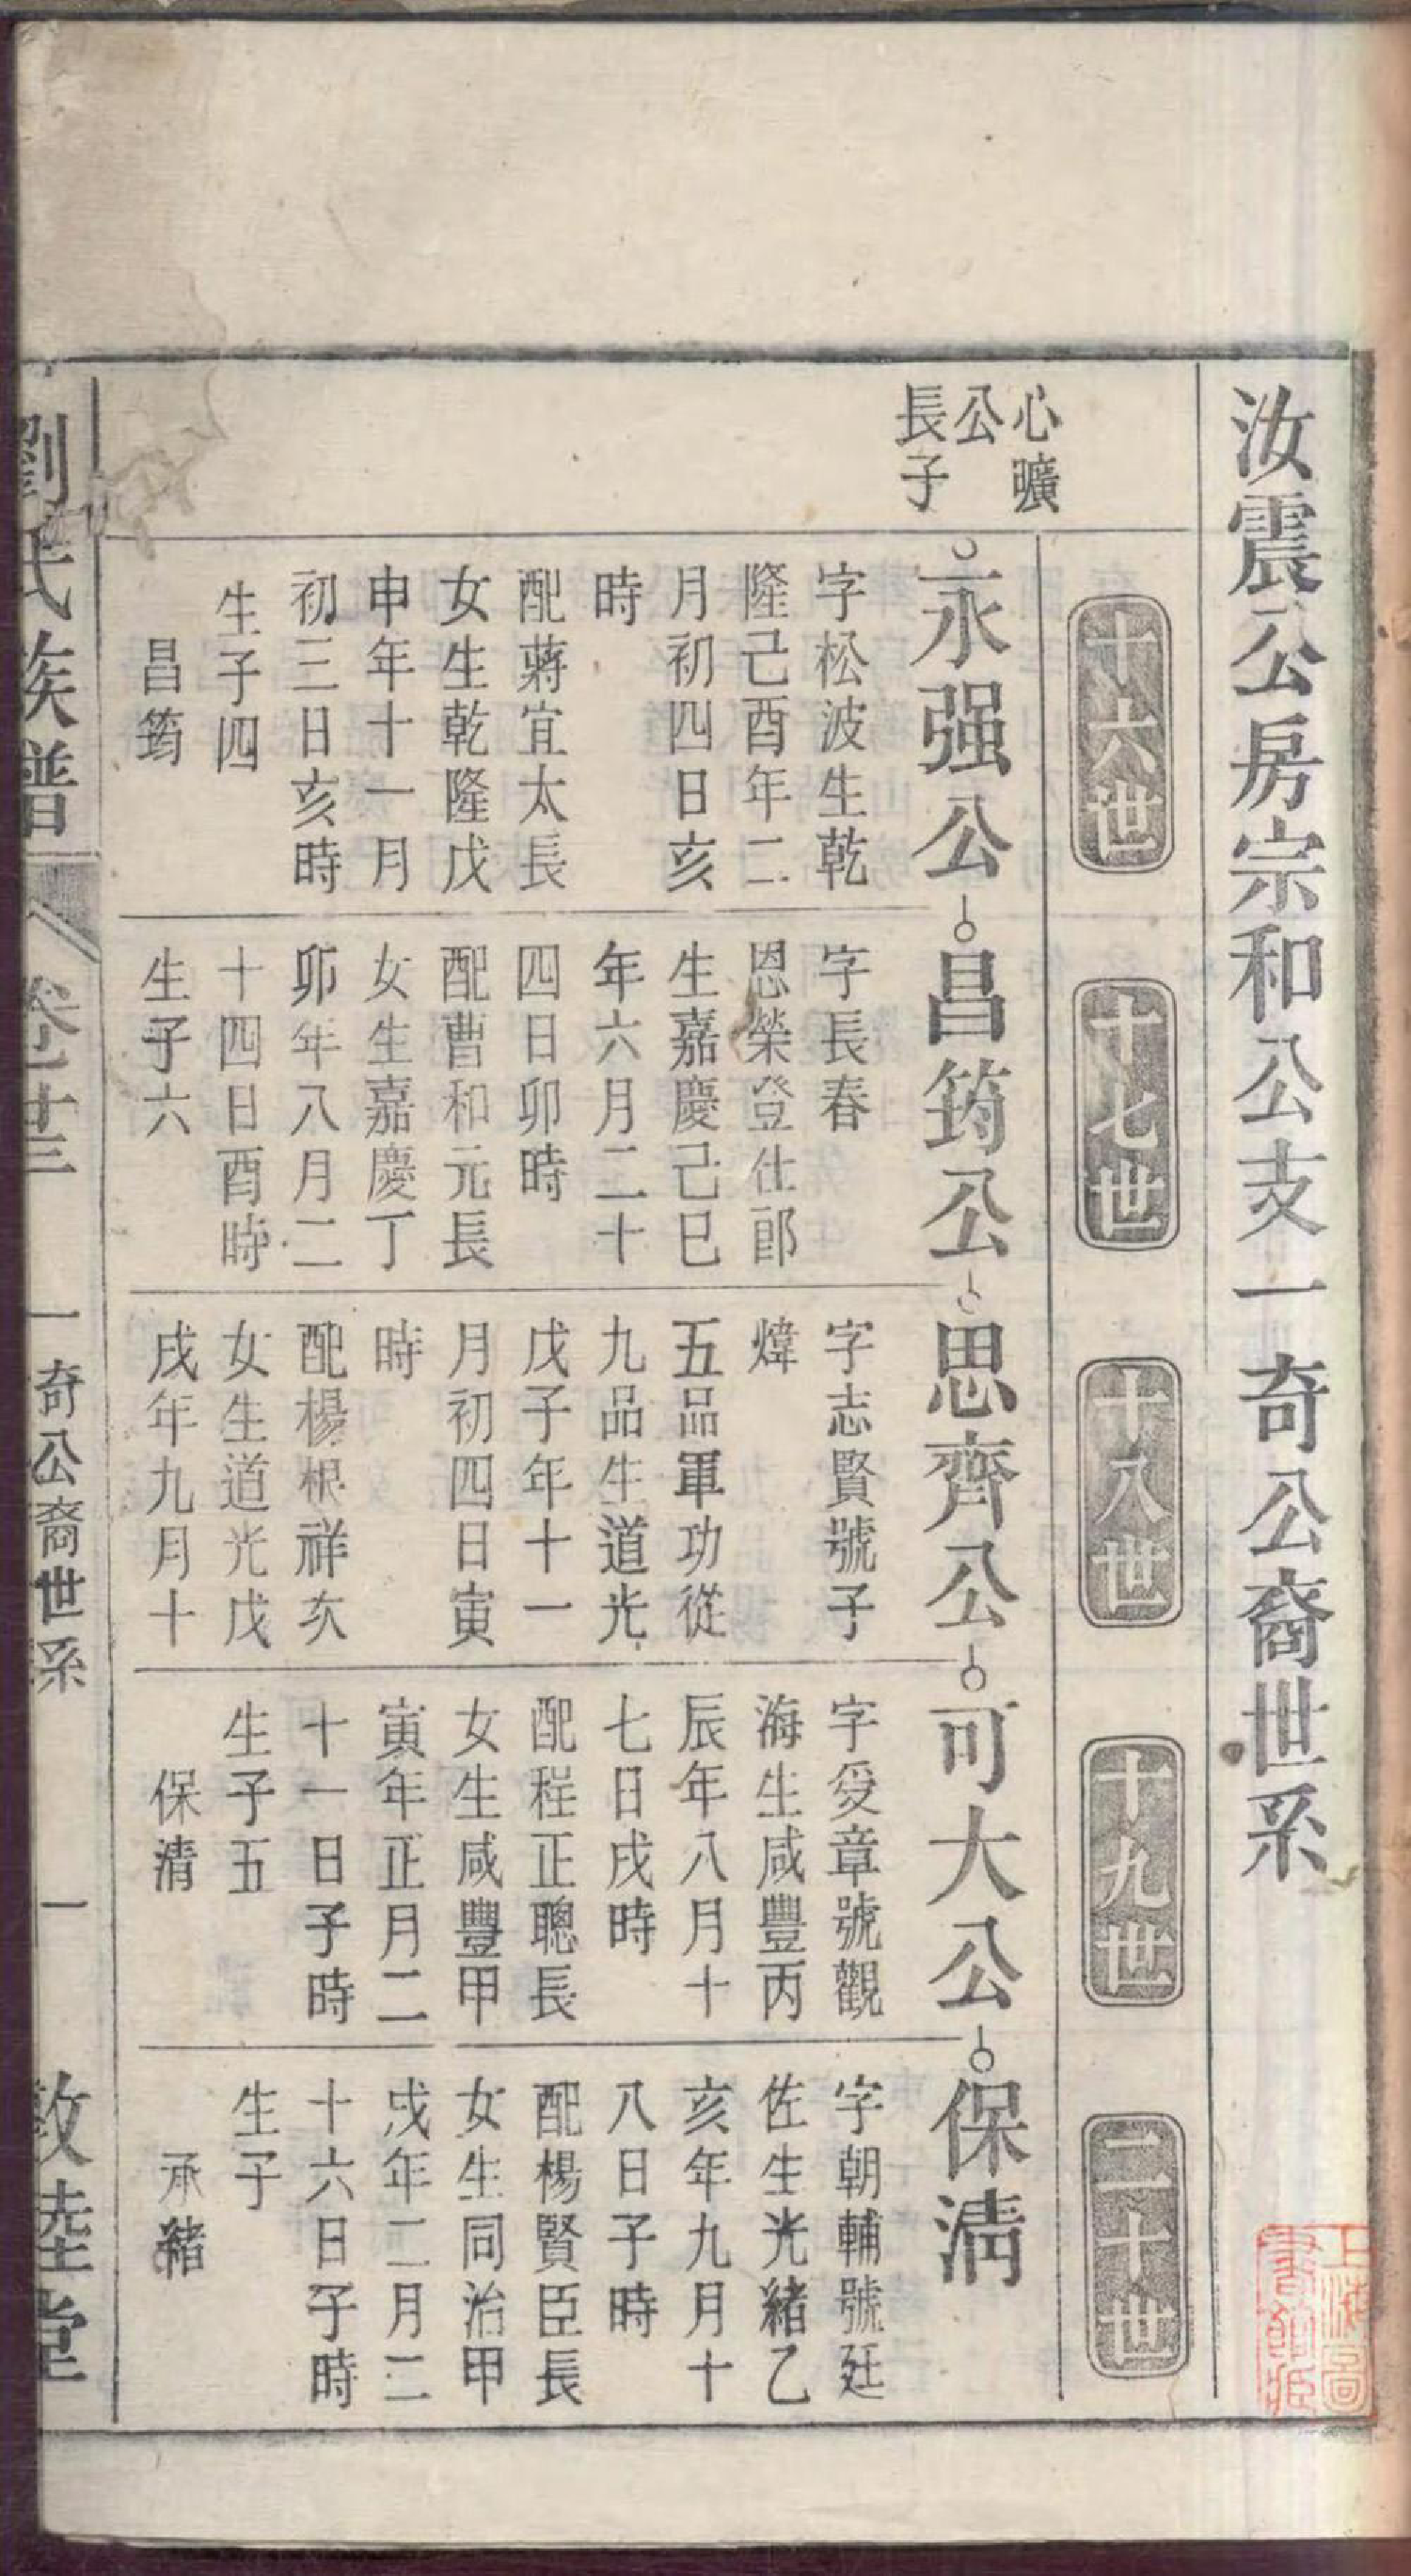 汝震公房宗和公支一奇公裔世系
十六世
十七世
十八世
十九世
二十世
心曠
公
長子
永强公
字松波生乾
隆己酉年二
月初四日亥
時
配蔣宜太長
女生乾隆戊
申年十一月
初三日亥時
生子四
昌筠
昌筠公
字長春
恩榮登仕郎
生嘉慶己巳
年六月二十
四日卯時
配曹和元長
女生嘉慶丁
卯年八月二
十四日酉時
生子六
思齊公
字志賢號子
煒
五品軍功從
九品生道光
戊子年十一
月初四日寅
時
配楊根祥次
女生道光戊
戌年九月十
可大公
字受章號觀
海生咸豐丙
辰年八月十
七日戌時
配程正聰長
女生咸豐甲
寅年正月二
十一日子時
生子五
保清
保淸
字朝輔號廷
佐生光緒乙
亥年九月十
八日子時
配楊賢臣長
女生同治甲
戌年二月二
十六日子時
生子
承緒
劉氏族譜
卷廿三
一奇公裔世系
一
敦睦堂
上海圖
書館藏